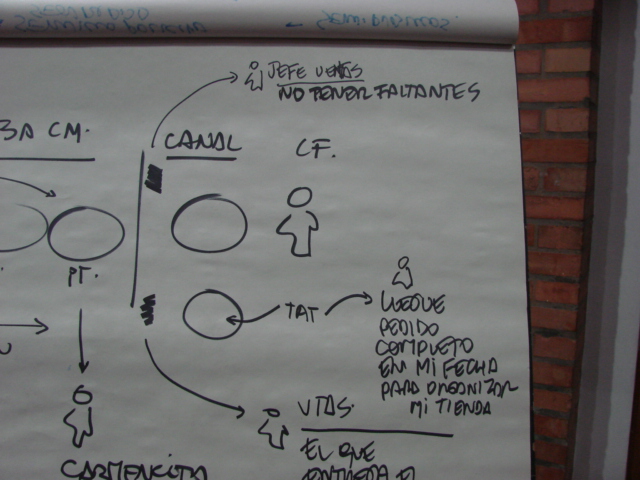 JEFE VENTAS
NO TENER FALTANTES
BA CM.
CANAL
CF.
PT.
TAT
LLEGUE
PEDIDO
COMPLETO
EN MI FECHA
PARA ORGANIZAR
MI TIENDA
VTAS.
EL QUE
ENTREGA EL
CARMENCITA